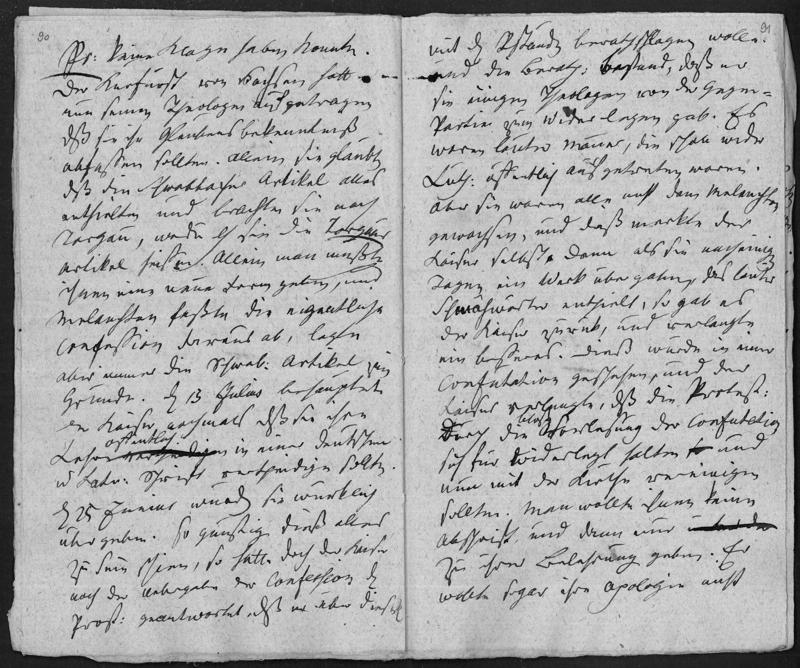 90
Pr: keine Klage haben konnte.
Der Kurfürst von Sachsen hatte
nun seinen Theologen aufgetragen
dß sie ihr Glaubensbekenntniß
abfassen sollten. Allein sie glaubten
dß die Schwabacher Artikel alles
enthielten und brachten sie nach
Torgau, woher sie die Torgauer
Artikel heißen. Allein man mußte
ihnen eine neue Form geben, und
Melanchton faßte die eigentliche
Confession daraus ab, legte
aber immer die Schwab: Artikel zum
Grunde. D 13 Julius behauptete
der Kaiser nochmals dß sie ihre
Lehre öffentlich in einer deutschen
u Latein: Schrift vertheidigen sollten.
D 25 Junius wurde sie würklich
übergeben. So günstig dieß alles
zu seyn schien, so hatte doch der Kaiser
nach der Uebergabe der Confession d
Prost: geantwortet, dß er über dieselbe
91
mit d Ständen berathschlagen wolle.
und die Berath: bestand, daß er
sie einigen Theologen von der Gegen=
Partie zum Widerlegen gab. Es
waren lauter Männer, die schon wider
Luth: öffentlich aufgetreten waren.
Aber sie waren alle nicht dem Melanchton
gewachsen, und daß merkte der
Kaiser selbst. Denn als sie nach einigen
Tagen ein Werk übergaben, das lauter
Schmähworter enthielt, so gab es
der Kaiser zurück, und verlangte
ein besseres. Dieß wurde in einer
Confutation geschehen, und der
Kaiser verlangte, dß die Protest:
durch die bloße Vorlesung der Confutation
sich für widerlegt halten und
nun mit der Kirche vereinigen
sollten. Man wollte ihnen keine
Abschrift und dann nur
zu ihrer Belehrung geben. Er
wollte sogar ihre Apologie nicht